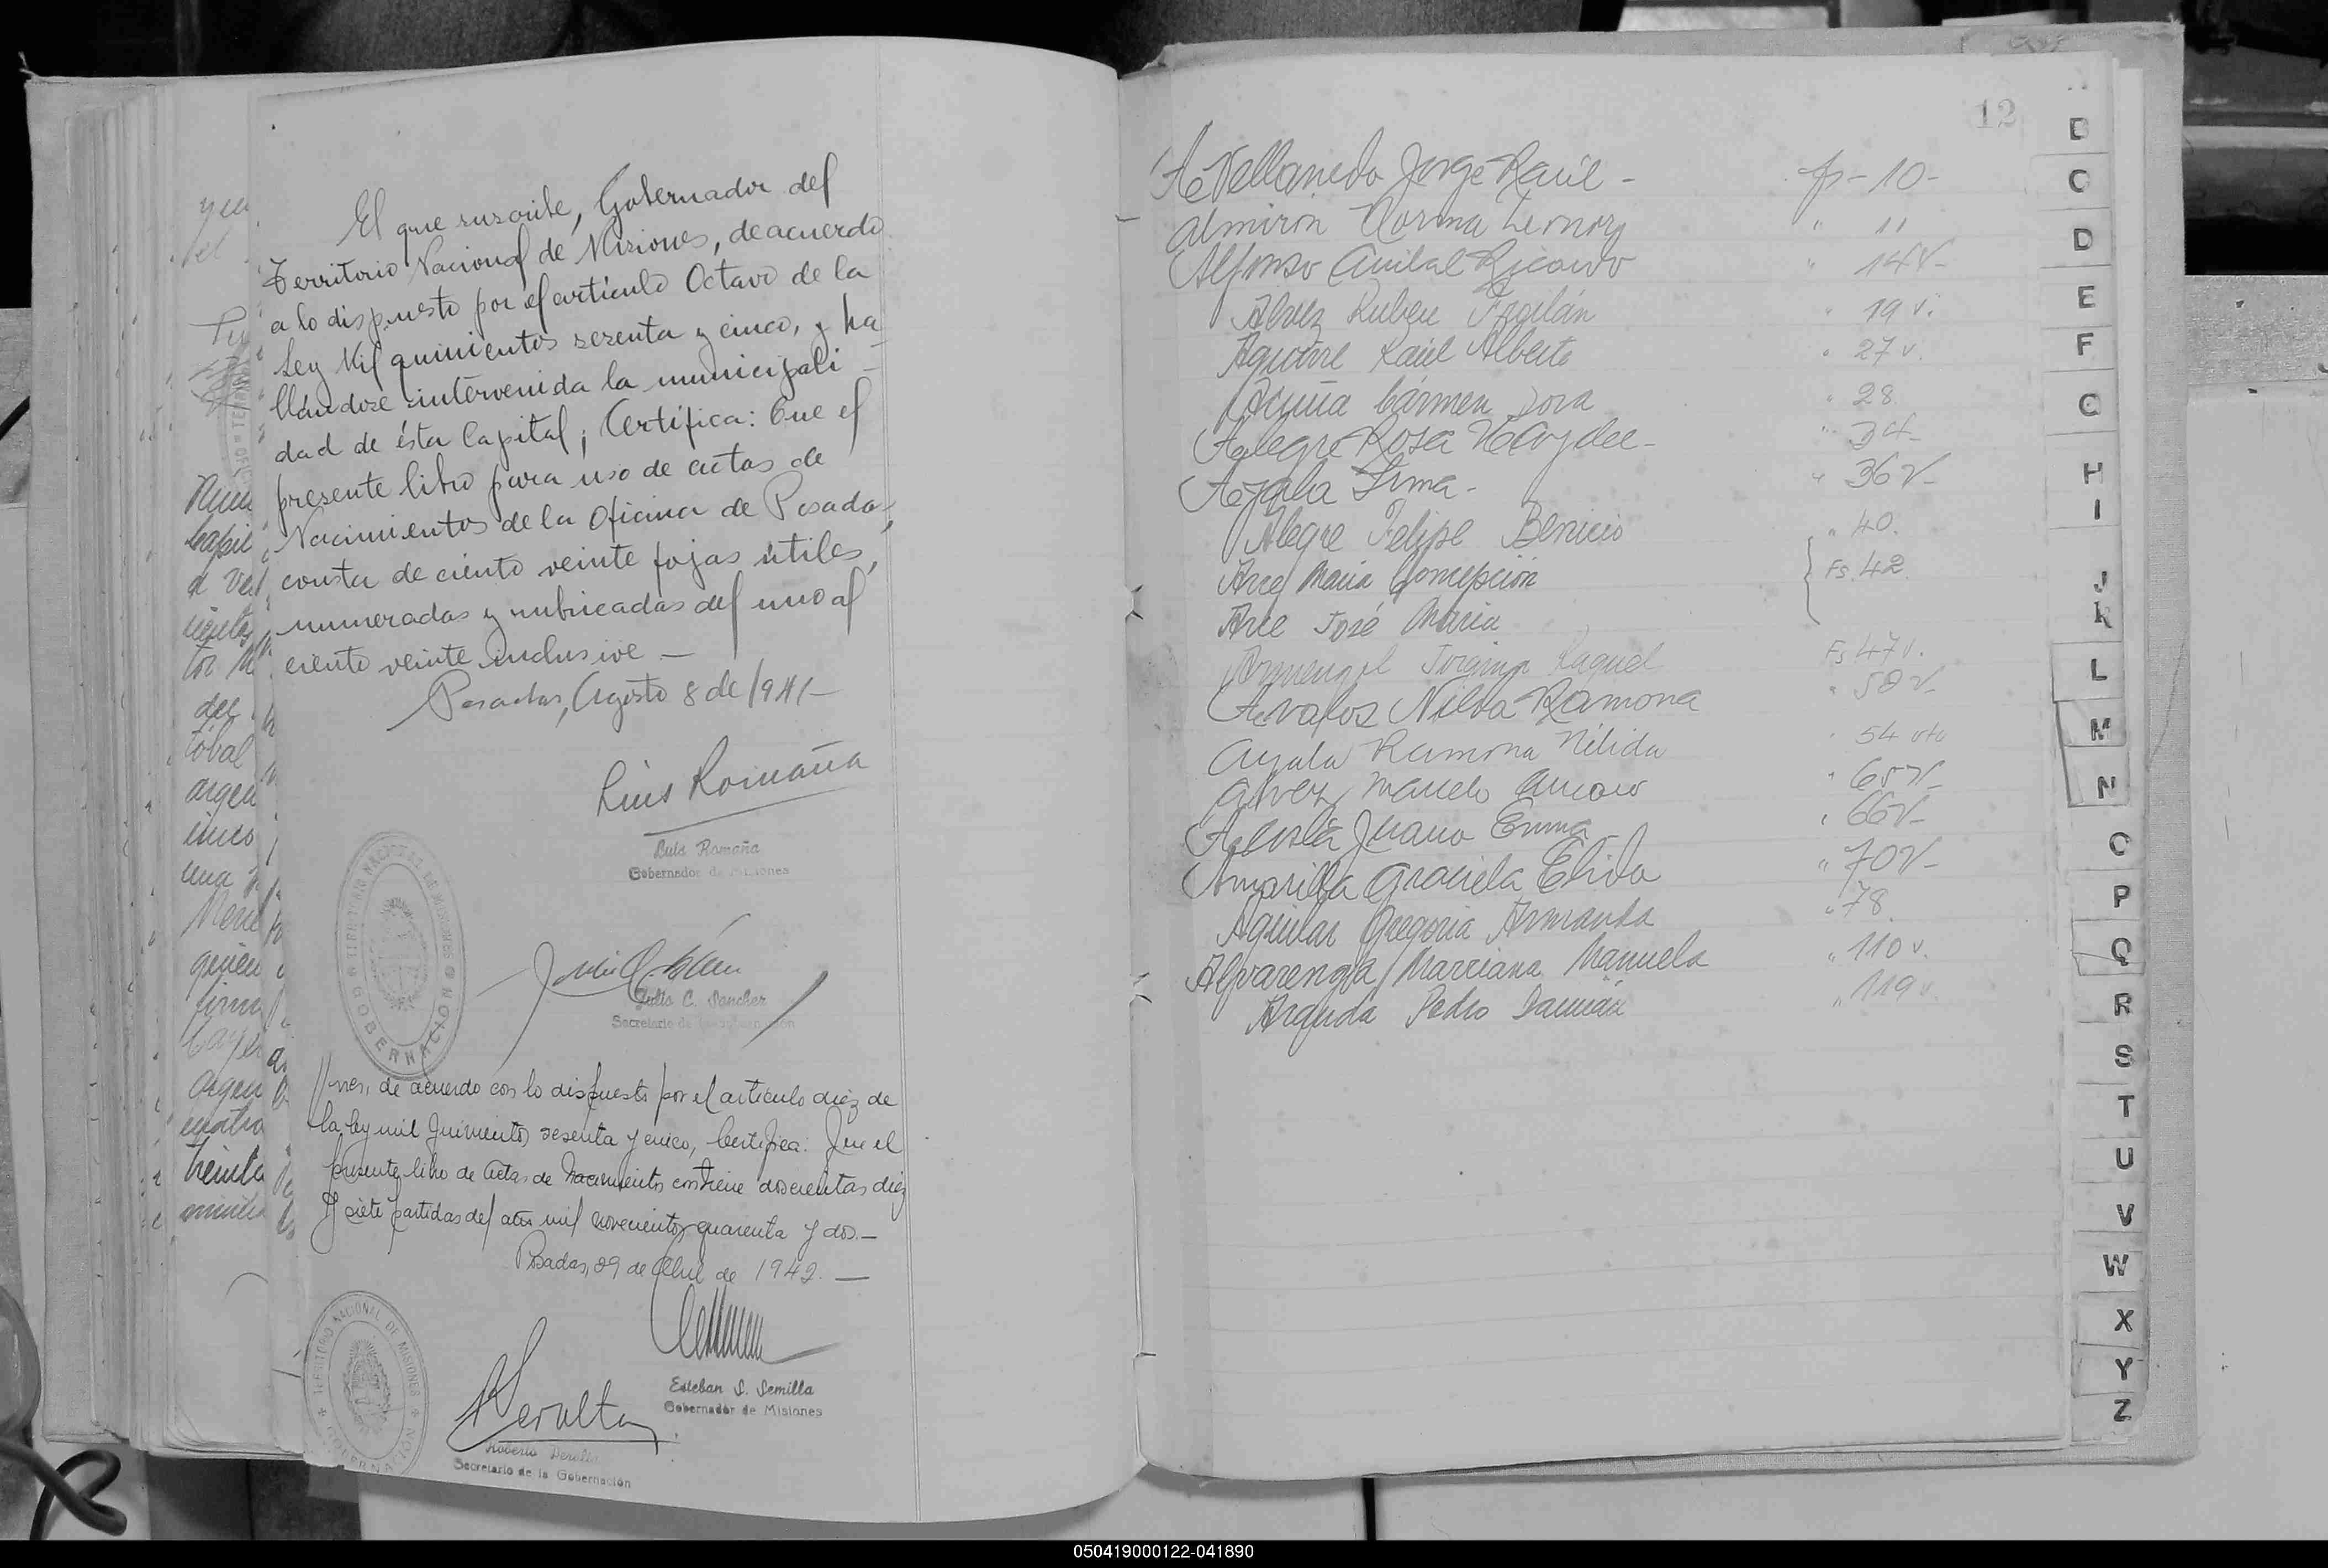 El que suscribe, Gobernador del
Territorio Nacional de Misiones, de acuerdo
a lo dispuesto por el artículo Octavo de la
Ley Mil quinientos sesenta y cinco, y ha
llándose intervenida la municipali-
dad de ésta Capital; Certifica: Que el
presente libro para uso de actas de
Nacimientos de la Oficina de Posadas,
consta de ciento veinte fojas útiles,
numeradas y rubricadas del uno al
ciento veinte inclusive —
Posadas, Agosto 8 de 1941—
Luis Romaña
Luis Romaña
Gobernador de Misiones
TERRITORIO NACIONAL DE MISIONES
GOBERNACION
Julio C. Sancher
Secretario de la Gobernación
de acuerdo con lo dispuesto por el artículo diez de
la ley mil quinientos sesenta y cinco, Certifica: Que el
presente libro de actas de Nacimientos contiene doscientas diez
y siete partidas del año mil novecientos cuarenta y dos.—
Posadas, 29 de Abril de 1942. —
Esteban S. Semilla
Gobernador de Misiones
TERRITORIO NACIONAL DE MISIONES
GOBERNACION
Peralta
Roberto Peralta
Secretario de la Gobernación
12
Avellaneda Jorge Raúl - fs - 10 -
Almirón Norma Leonor " 11
Alfonso Anibal Ricardo " 14 v-
Alvez Ruben Froilán " 19 v.
Aguirre Raúl Alberto " 27 v.
Acuña Cármen Dora " 28
Alegre Rosa Haydee - " 34-
Ayala Irma - " 36 v-
Alegre Felipe Benicio " 40.
Arce María Concepción Fs. 42
Arce José María
Armengol Raquel Fs 47 v.
Avalos Nilda Ramona " 50 v-
Ayala Ramona Nélida " 54 vta
Alvez Marcelo " 65 v-
Acosta Juana Emma - " 66 v-
Amarilla Graciela Elida " 70 v-
Aguilar Gregoria Armanda " 78
Alvarenga Marciana Manuela " 110 v.
Aranda Pedro Damián " 119 v.
D
C
D
E
F
G
H
I
J
K
L
M
N
O
P
Q
R
S
T
U
V
W
X
Y
Z
050419000122-041890